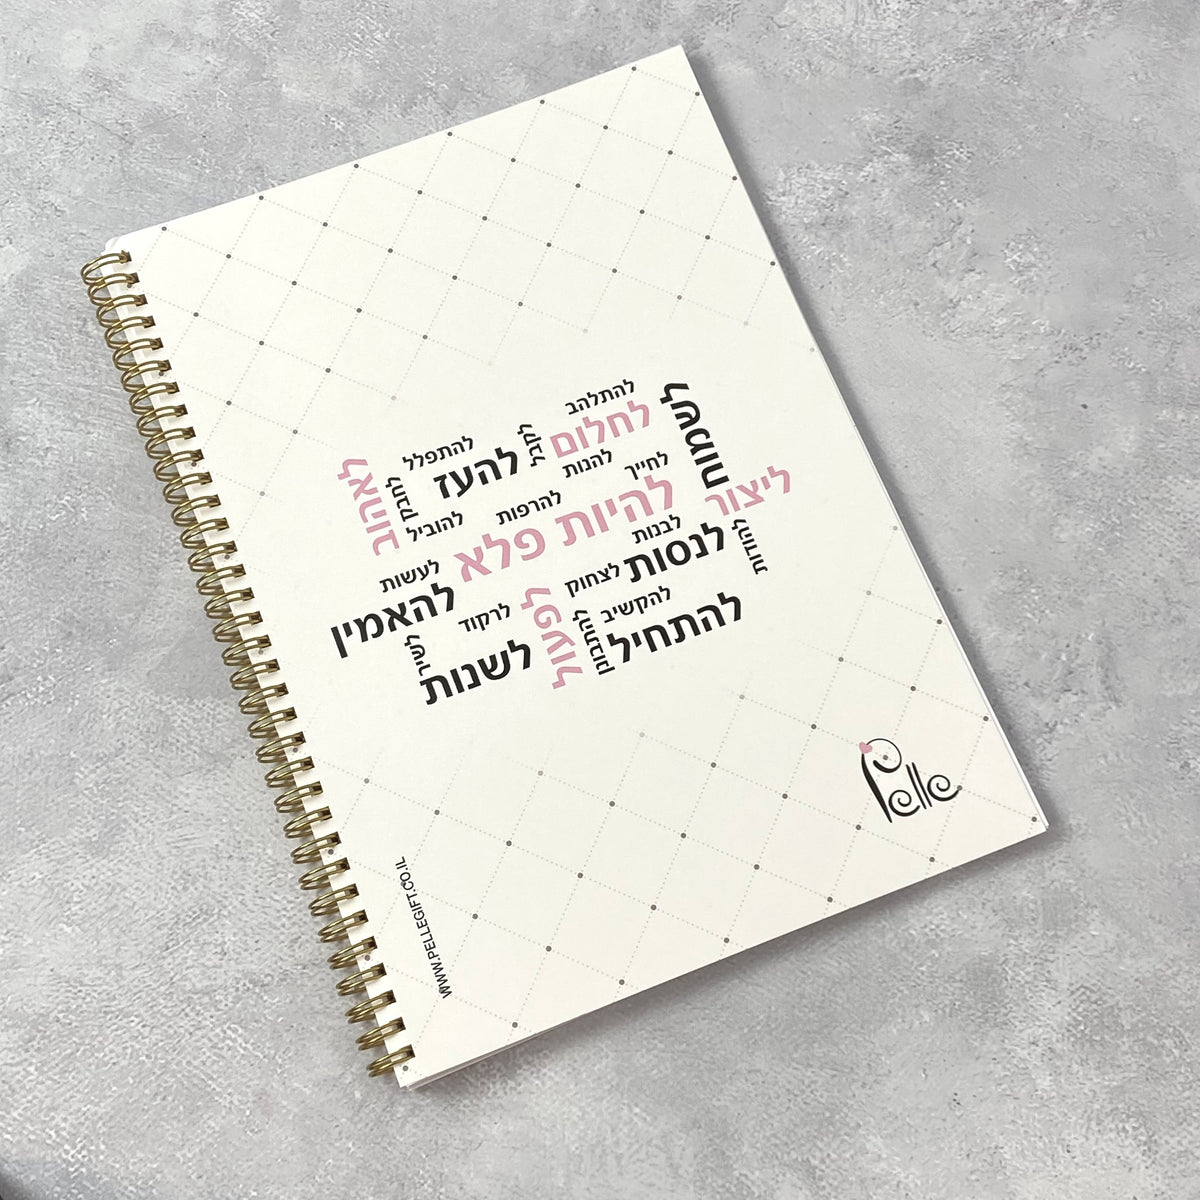 להתלהב
לחלום
לשמוח
לקבל
להתפלל
להעז
לאהוב
לחבק
להנות
לחייך
ליצור
להוביל
להרפות
להיות פלא
לבנות
לנסות
להודות
לעשות
להאמין
לצחוק
להקשיב
להתחיל
לרקוד
לפעול
להתבונן
לשיר
לשנות
Pelle
WWW.PELLEGIFT.CO.IL